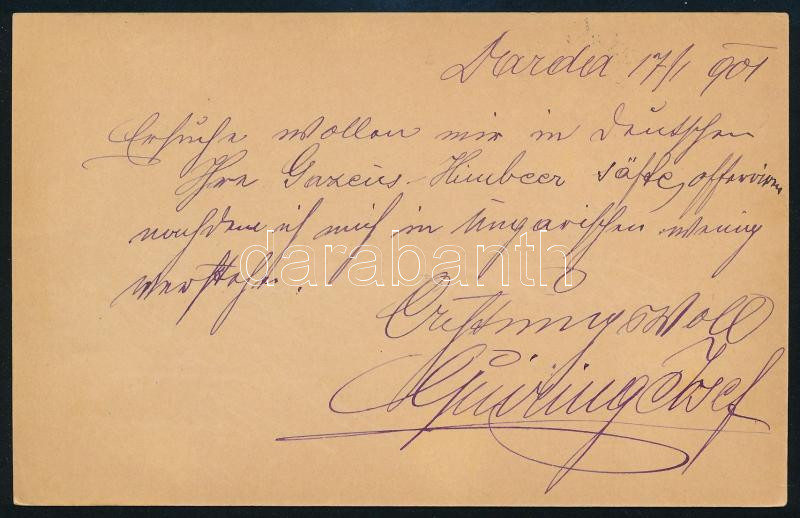 Darda 17/1 901
Ersuche wollen mir in Deutschen
Ihre Himbeer Säfte, offeriren
nachdem ich mich in Ungarischen wenig
verstehe.
Achtungsvoll
Josef
darabanth